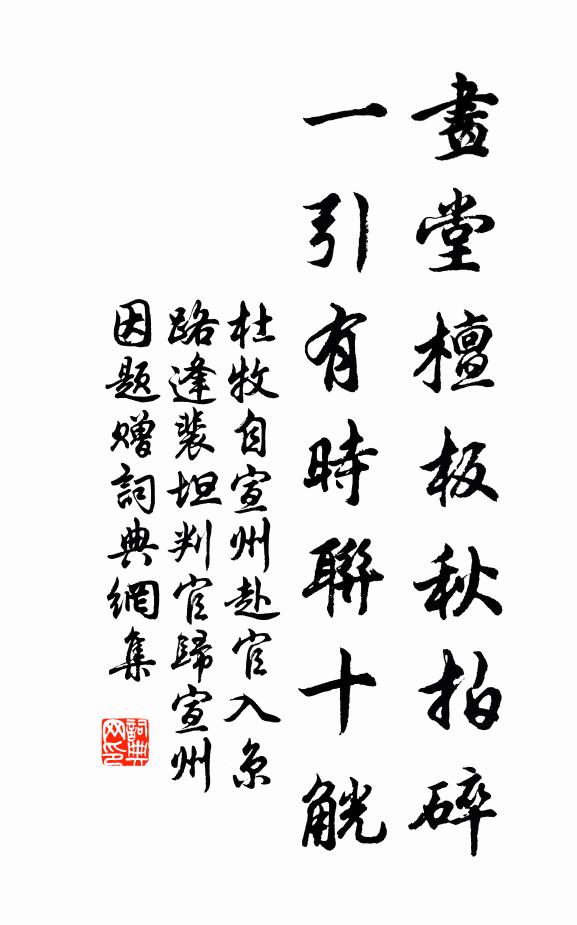 畫堂檀板秋拍碎
一引有時聯十觥
杜牧自宣州赴官入京
路逢裴坦判官歸宣州
因題贈詞典網集
詞典
网印